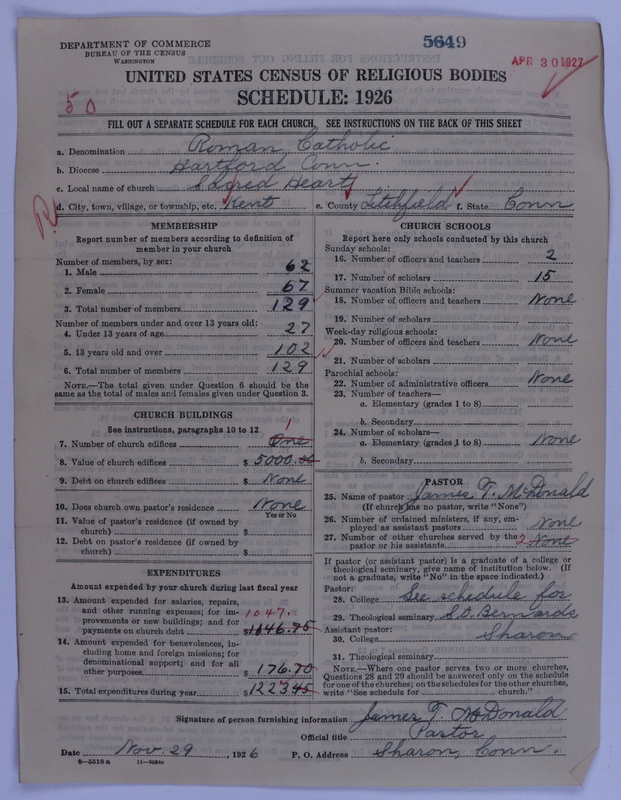 DEPARTMENT OF COMMERCE
BUREAU OF THE CENSUS
WASHINGTON
5649
APR 30 1927
UNITED STATES CENSUS OF RELIGIOUS BODIES
SCHEDULE: 1926
50
FILL OUT A SEPARATE SCHEDULE FOR EACH CHURCH, SEE INSTRUCTIONS ON THE BACK OF THIS SHEET
a. Denomination Roman Catholic
b. Diocese Hartford Conn.
c. Local name of church Sacred Heart
d. City, town, village, or township, etc. Kent e. County Litchfield f. State Conn
MEMBERSHIP
Report number of members according to definition of
member in your church
Number of members, by sex:
1. Male 62
2. Female 67
3. Total number of members 129
Number of members under and over 13 years old:
4. Under 13 years of age 27
5. 13 years old and over 102
6. Total number of members 129
NOTE.—The total given under Question 6 should be the
same as the total of males and females given under Question 3.
CHURCH BUILDINGS
See instructions, paragraphs 10 to 12
7. Number of church edifices One 1
8. Value of church edifices $ 5000.00
9. Debt on church edifices $ None
10. Does church own pastor's residence None
Yes or No
11. Value of pastor's residence (if owned by
church) $
12. Debt on pastor's residence (if owned by
church) $
EXPENDITURES
Amount expended by your church during last fiscal year
13. Amount expended for salaries, repairs,
and other running expenses; for im- 1047.
provements or new buildings; and for
payments on church debt $1046.75
14. Amount expended for benevolences, in-
cluding home and foreign missions; for
denominational support; and for all
other purposes $ 176.70
15. Total expenditures during year $ 1223.45
CHURCH SCHOOLS
Report here only schools conducted by this church
Sunday schools:
16. Number of officers and teachers 2
17. Number of scholars 15
Summer vacation Bible schools:
18. Number of officers and teachers None
19. Number of scholars
Week-day religious schools:
20. Number of officers and teachers None
21. Number of scholars
Parochial schools:
22. Number of administrative officers None
23. Number of teachers—
a. Elementary (grades 1 to 8)
b. Secondary
24. Number of scholars—
a. Elementary (grades 1 to 8) None
b. Secondary
PASTOR
25. Name of pastor James T. McDonald
(If church has no pastor, write "None")
26. Number of ordained ministers, if any, em-
ployed as assistant pastors None
27. Number of other churches served by the
pastor or his assistants 2 None
If pastor (or assistant pastor) is a graduate of a college or
theological seminary, give name of institution below. (If
not a graduate, write "No" in the space indicated.)
Pastor:
28. College See schedule for
29. Theological seminary St. Bernards
Assistant pastor:
30. College Sharon
31. Theological seminary
NOTE.—Where one pastor serves two or more churches,
Questions 28 and 29 should be answered only on the schedule
for one of the churches; on the schedules for the other churches,
write "See schedule for church."
Signature of person furnishing information James T. McDonald
Official title Pastor
Date Nov. 29, 1926 P. O. Address Sharon, Conn.